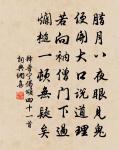 腊月八夜眼見鬼
便開大口說道理
若向衲僧門下過
爛槌一頓無疑矣
釋普寧偈頌四十一首
詞典網集